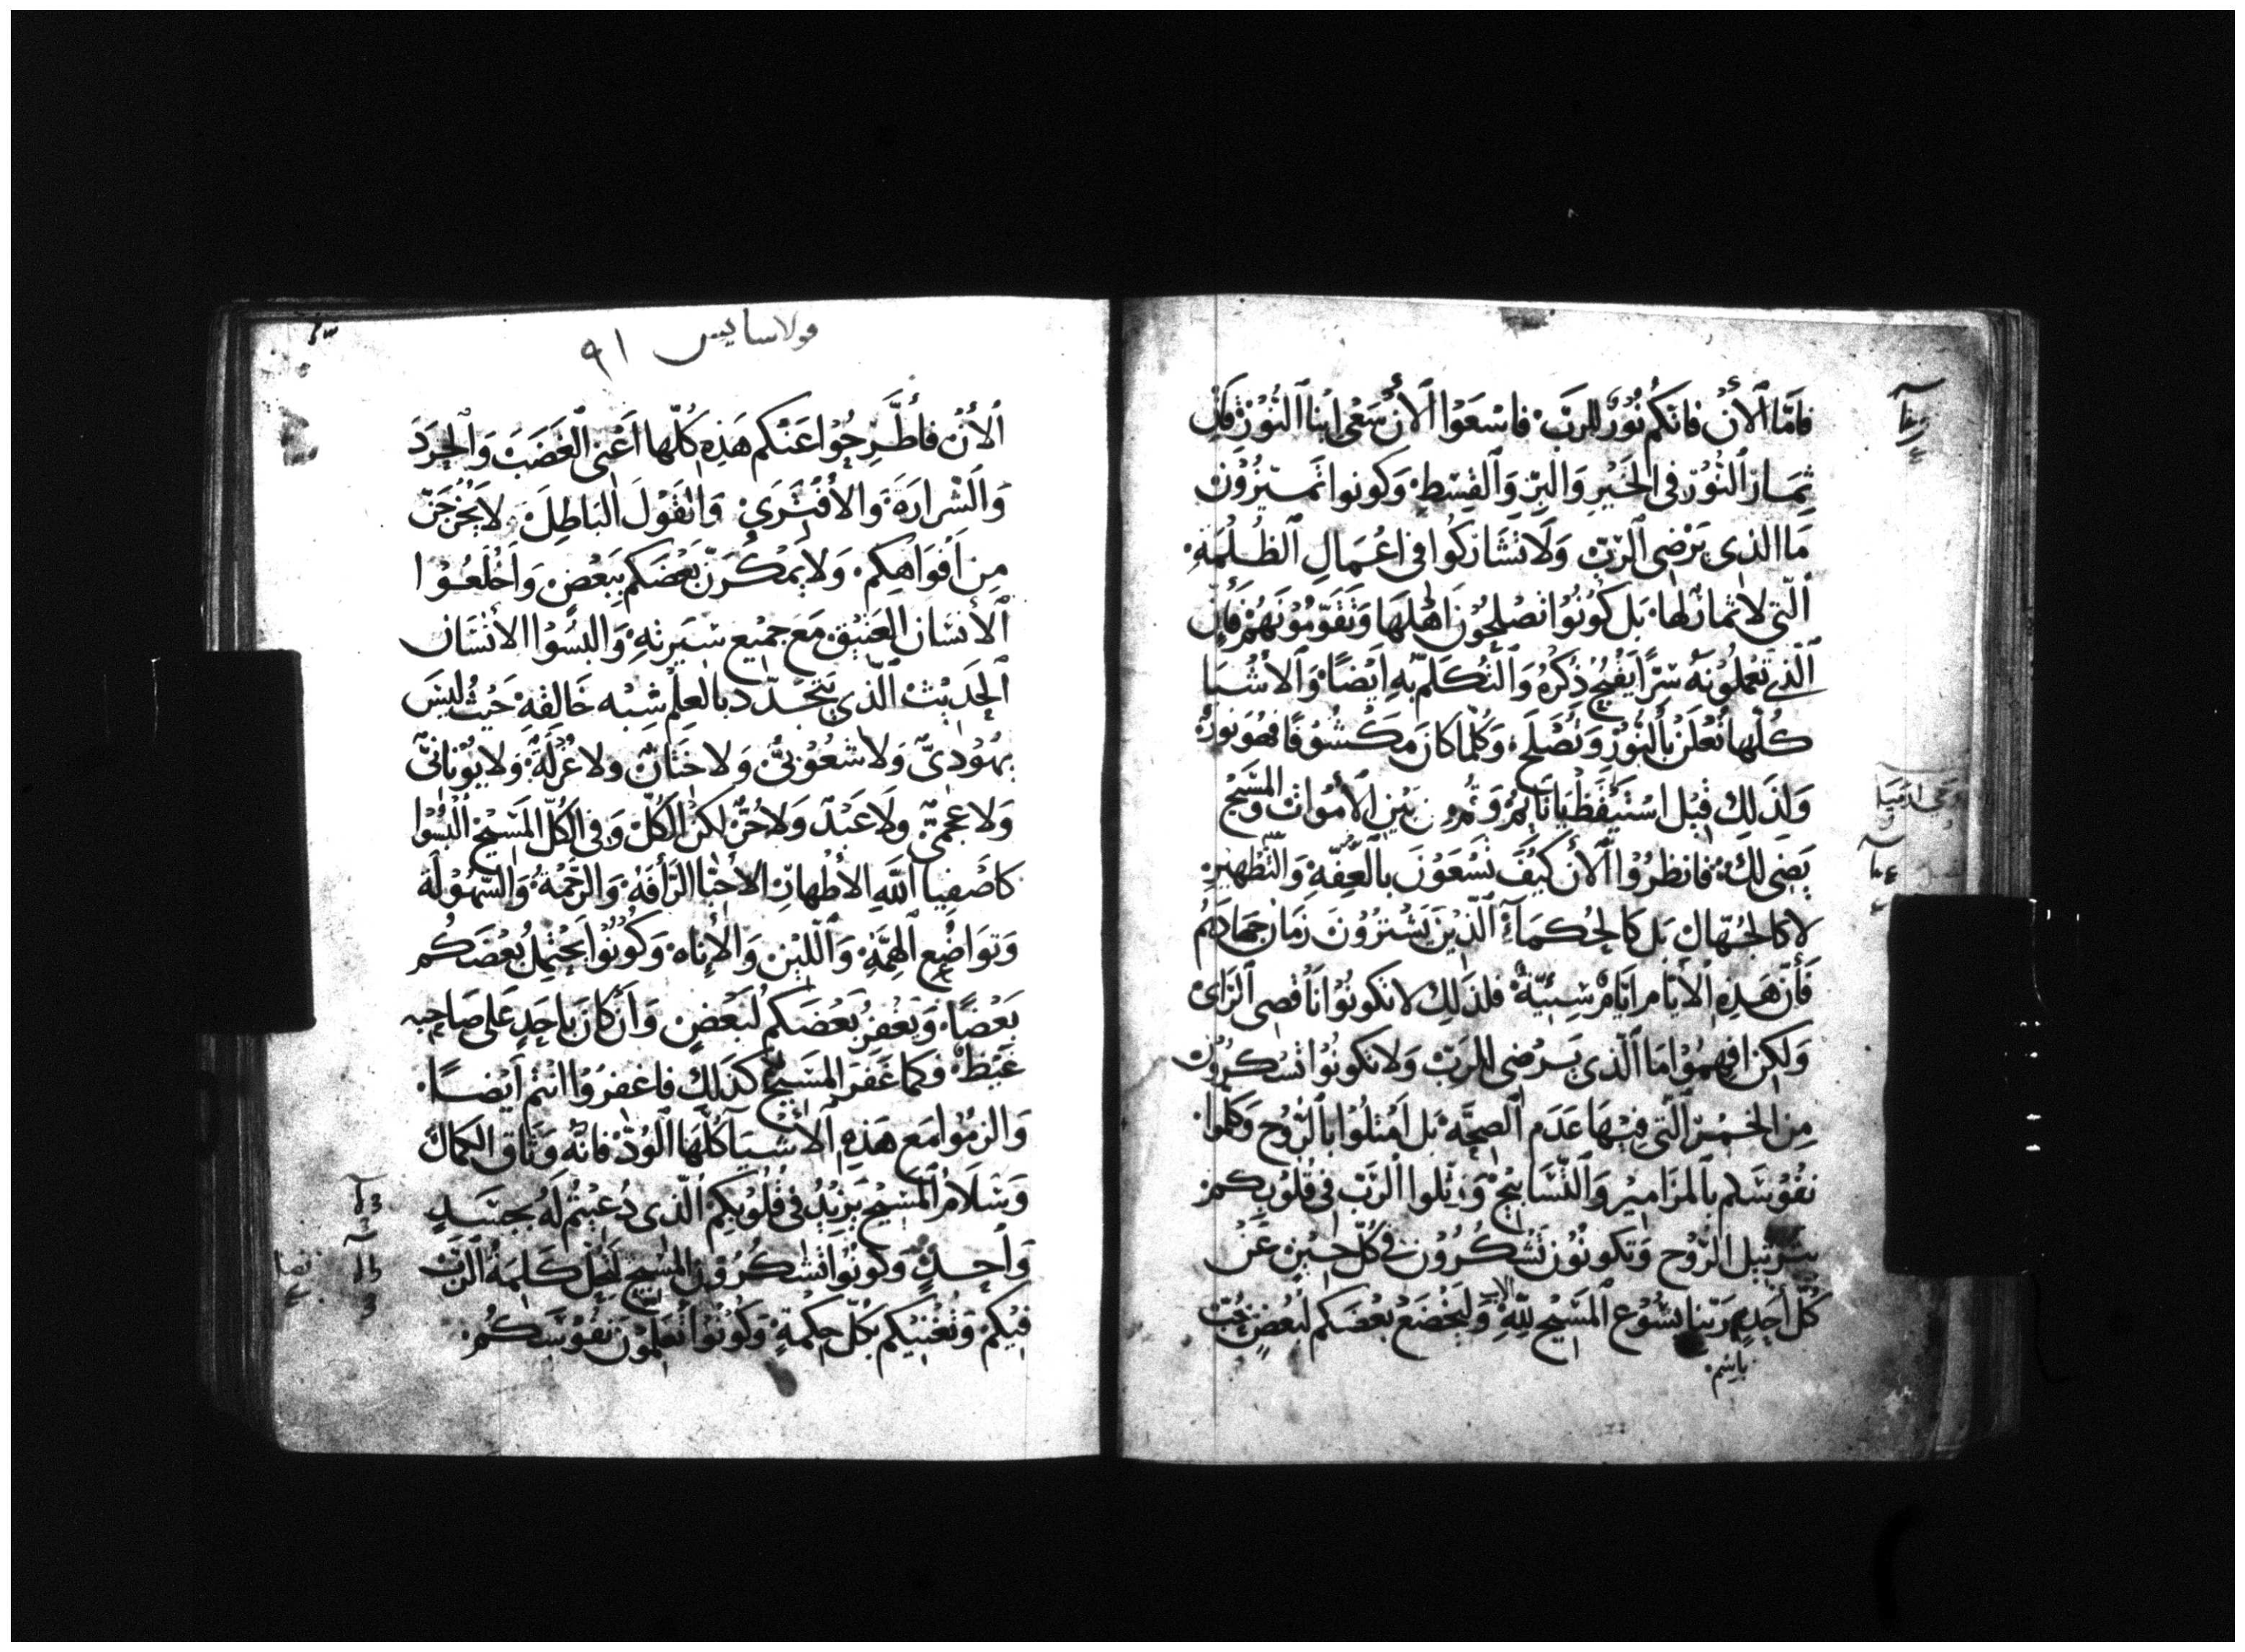 فَامَّا ٱلأَنْ فانكم نُوُرٌ للرَبّ فاسْعَوْا ٱلأنَ سَعْى ابْناَ ٱلنُّوُرْ فَانّ
ثِمَارَ ٱلنُّوُرْ فى الخَيْرِ وَالبِرِّ وَٱلقِسْطِ وَكونوا تَمِيّزُوْنَ
مَا الذى يَرْضى ٱلرّبّ وَلَا تُشَارَكُوا فى اعْمَالِ ٱلظُلْمَهِ
الَّتي لاثمارَ لهَا بَل كُوْنُوْا تصْلِحُوْنَ اهْلهَا وَتقَوّمُوْنَهُمْ فَأنّ
ٱلَّذي تعْملُوْنَهُ سِرًّا يَقْبُحُ ذِكْرُهُ وَٱلتكَلّم بهِ ايْضًا وَٱلأشْيَا
كُلّها تُعْلَنْ بالنُّوُرْ وَتُصْلَح وَكُلّما كانَ مَكْشُوْفًا فهُوَ نُوْرٌ
وَلِذَلِكَ قيْل اسْتَيْقظ يانايِمْ وَقُمْ من بَيْن ٱلأمْوَات وَالمَسِيْح
يَضى لك فانظرُوْا ٱلأنَ كَيْفَ تسْعَوْنَ بالعِفّهِ وَٱلتّطْهيْرِ
لا كالجُهّال بَل كالحُكمَاءِ ٱلّذيْنَ يَشْترُوْنَ زمَان جهَادهِمْ
فَأنّ هَذِهِ الأيّام ايّامٌ شِيئيّة فلذَلِكَ لا تكونُوْا ناقصى ٱلرَاى
وَلَكِنِ افهمُوْا مَا ٱلّذى يَرْضى للرَبّ وَلا تكونُوْا تسْكرُوْن
مِن الخَمْرِ ٱلّتي فِيْهَا عَدَم ٱلصِحّه بَل امْتلُوُا بالرُّوُح وَكلّموا
نفُوْسَكم بالمزَامِيْر وَٱلتّسَابِيْح وَرَتّلوا ٱلرّبّ فى قُلوْبكمْ
بترْتيْل ٱلرُّوْح وَتكونُوْن تَشْكُرُوْنَ في كُلّ حِيْنِ عَنْ
كُلّ أحَدٍ باسْم رَبّنا يَسُوْع ٱلمَسِيْح للهِ الاب وَليَخْضَعْ بعْضَكم لبَعْضٍ بحُبّ

فولاسايس ٩١
ٱلأَنْ فأطَّرِحُوْا عَنْكم هَذِهِ كُلّها اعْنى الغَضَبَ وَٱلحِرَدَ
وَٱلشّرارَةَ وَالأفْتِرَى وَالقَوْلَ البَاطِلَ لايَخْرُجَنّ
مِن افْوَاهِكم وَلا يَمْكُرَنّ بَعْضَكم بِبَعْضٍ وَاخْلَعُوْا
ٱلأنسَان العَتيْق مَع جَمِيْع سِيَرتهِ وَالبسُوْا الأنسَان
ٱلحَدِيْث ٱلّذي يَتجَدّد بالعلِم شِبْه خَالِقهِ حَيْث ليْسَ
يهُوْدىّ وَلا شعُوْبيّ وَلاختَانٌ ولا غُرْلَةٌ وَلا يُوْنانىّ
وَلا عجَمىّ وَلا عَبْدٌ وَلا حُرّ لكنّ الكُلّ وَفى الكُلّ المَسِيْح البسُوْا
كاصْفِيا اللهِ الأطهارِ الأحبّا الرّأفة وَالرّحْمَة وَالسّهُوْلَة
وَتواضُع الهِمّة وَاللّيْن وَالأناه وَكُوْنُوْا يَحْتمِل بَعْضَكُم
بَعْضًا وَيَغْفِرْ بَعْضَكم لبَعْضٍ وَأن كانَ باحَدٍ عَلى صَاحِبه
غَيْظ وَكمَا غَفرَ المَسِيْح كَذَلِك فاغفرُوْا انتم ايْضًا
وَالزمُوْا مَع هَذِهِ ٱلأشْيَا كُلّهَا ٱلوُدّ فانّهُ وَثاق الكمَال
وَسَلَامُ ٱلمَسِيْح يَزيْدُ فى قُلُوْبكم ٱلّذى دُعيْتُمْ لَهُ بجسَدٍ
وَاحِدٍ وَكُوْنُوْا تَشْكرُوْن المَسِيْح لتحل كَلِمَة ٱلرَبّ
فِيْكُم وَتُغنيْكم بكُلّ حِكمَةٍ وَكُوْنُوْا تعَلِمُوْنَ نفُوْسَكُم